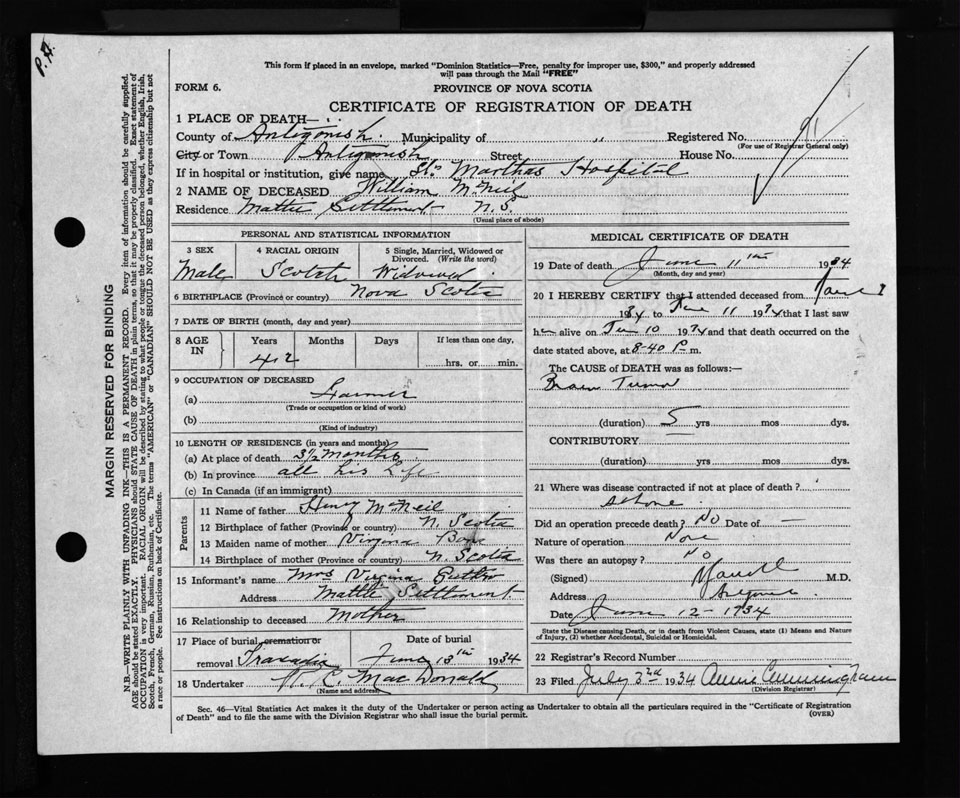 P.H.
This form if placed in an envelope, marked "Dominion Statistics—Free, penalty for improper use, $300," and properly addressed
will pass through the Mail "FREE"
FORM 6.
PROVINCE OF NOVA SCOTIA
CERTIFICATE OF REGISTRATION OF DEATH
1 PLACE OF DEATH—
County of Antigonish Municipality of " Registered No. 91
(For use of Registrar General only)
City or Town Antigonish Street House No.
If in hospital or institution, give name St. Marthas Hospital
2 NAME OF DECEASED William McNeil
Residence Mattie Settlement N.S.
(Usual place of abode)
PERSONAL AND STATISTICAL INFORMATION
3 SEX
Male
4 RACIAL ORIGIN
Scotch
5 Single, Married, Widowed or
Divorced. (Write the word)
Widowed
6 BIRTHPLACE (Province or country) Nova Scotia
7 DATE OF BIRTH (month, day and year)
8 AGE
IN
Years Months Days If less than one day,
42 hrs. or min.
9 OCCUPATION OF DECEASED
(a) Farmer
(Trade or occupation or kind of work)
(b)
(Kind of industry)
10 LENGTH OF RESIDENCE (in years and months)
(a) At place of death 3½ Months
(b) In province all his Life
(c) In Canada (if an immigrant)
Parents
11 Name of father Henry McNeil
12 Birthplace of father (Province or country) N. Scotia
13 Maiden name of mother Virginia
14 Birthplace of mother (Province or country) N. Scotia
15 Informant's name Mrs Virginia
Address Mattie Settlement
16 Relationship to deceased Mother
17 Place of burial, cremation or
removal Tracadie
Date of burial
June 13th 1934
18 Undertaker C. MacDonald
(Name and address)
MEDICAL CERTIFICATE OF DEATH
19 Date of death June 11th 1934
(Month, day and year)
20 I HEREBY CERTIFY that I attended deceased from
1934 to June 11 1934 that I last saw
him alive on Jun 10 1934 and that death occurred on
date stated above, at 8-40 P m.
The CAUSE of DEATH was as follows:—
Brain Tumor
(duration) 5 yrs mos dys.
CONTRIBUTORY
(duration) yrs mos dys.
21 Where was disease contracted if not at place of death?
at home
Did an operation precede death? No Date of —
Nature of operation None
Was there an autopsy? No
(Signed) M.D.
Address
Date June 12- 1934
State the Disease causing Death, or in death from Violent Causes, state (1) Means and Nature
of Injury, (2) whether Accidental, Suicidal or Homicidal.
22 Registrar's Record Number
23 Filed July 3rd 1934 Annie Cunningham
(Division Registrar)
Sec. 46—Vital Statistics Act makes it the duty of the Undertaker or person acting as Undertaker to obtain all the particulars required in the "Certificate of Registration
of Death" and to file the same with the Division Registrar who shall issue the burial permit.
(OVER)
MARGIN RESERVED FOR BINDING
N.B.—WRITE PLAINLY WITH UNFADING INK—THIS IS A PERMANENT RECORD. Every item of information should be carefully supplied.
AGE should be stated EXACTLY. PHYSICIANS should STATE CAUSE OF DEATH in plain terms, so that it may be properly classified. Exact statement of
OCCUPATION is very important. RACIAL ORIGIN will be described by stating to what people or tongue the deceased person belonged, whether English, Irish,
Scotch, French, German, Russian, Ruthenian, etc. The terms "AMERICAN" or "CANADIAN" SHOULD NOT BE USED as they express citizenship but not
a race or people. See instructions on back of Certificate.